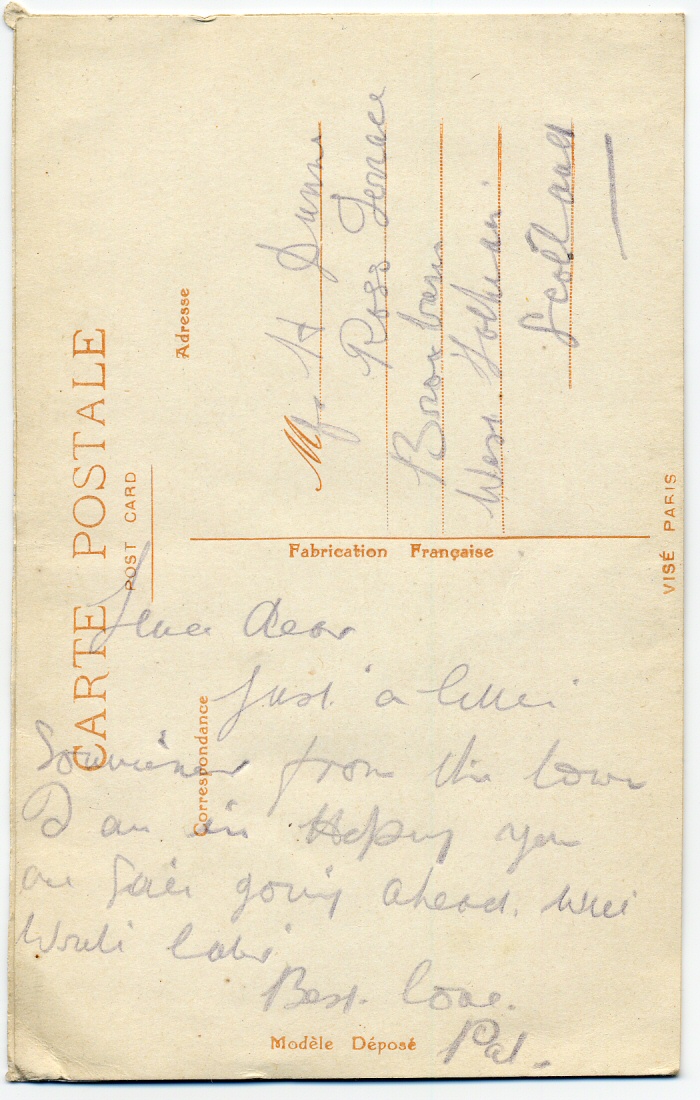 CARTE POSTALE
POST CARD
Adresse
M/s H Dunn
Ross Terrace
Broxburn
West Lothian
Scotland
Fabrication Française
VISÉ PARIS
Correspondance
Dear
Just a little
Souvenir from the town
I am in Hoping you
are going ahead. Will
Write later
Best love.
Pat.
Modèle Déposé